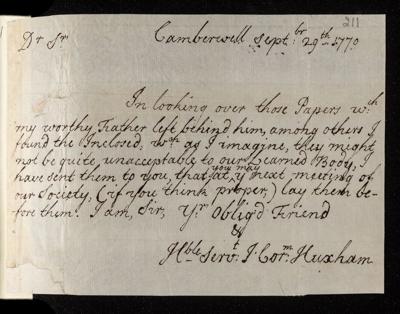 211
Dr Sr Camberwell Septbr 29th 1770
In looking over those Papers wch
my worthy Father left behind him, among others I
found the Inclosed, wch as I imagine, they might
not be quite, unacceptable to our Learned Body, I
have sent them to you, that at ye next meeting of
you may
our Society, (if you think proper,) lay them be-
fore them. I am, Sir, Yr Oblig'd Friend
&
Hble Servt J: Corm Huxham